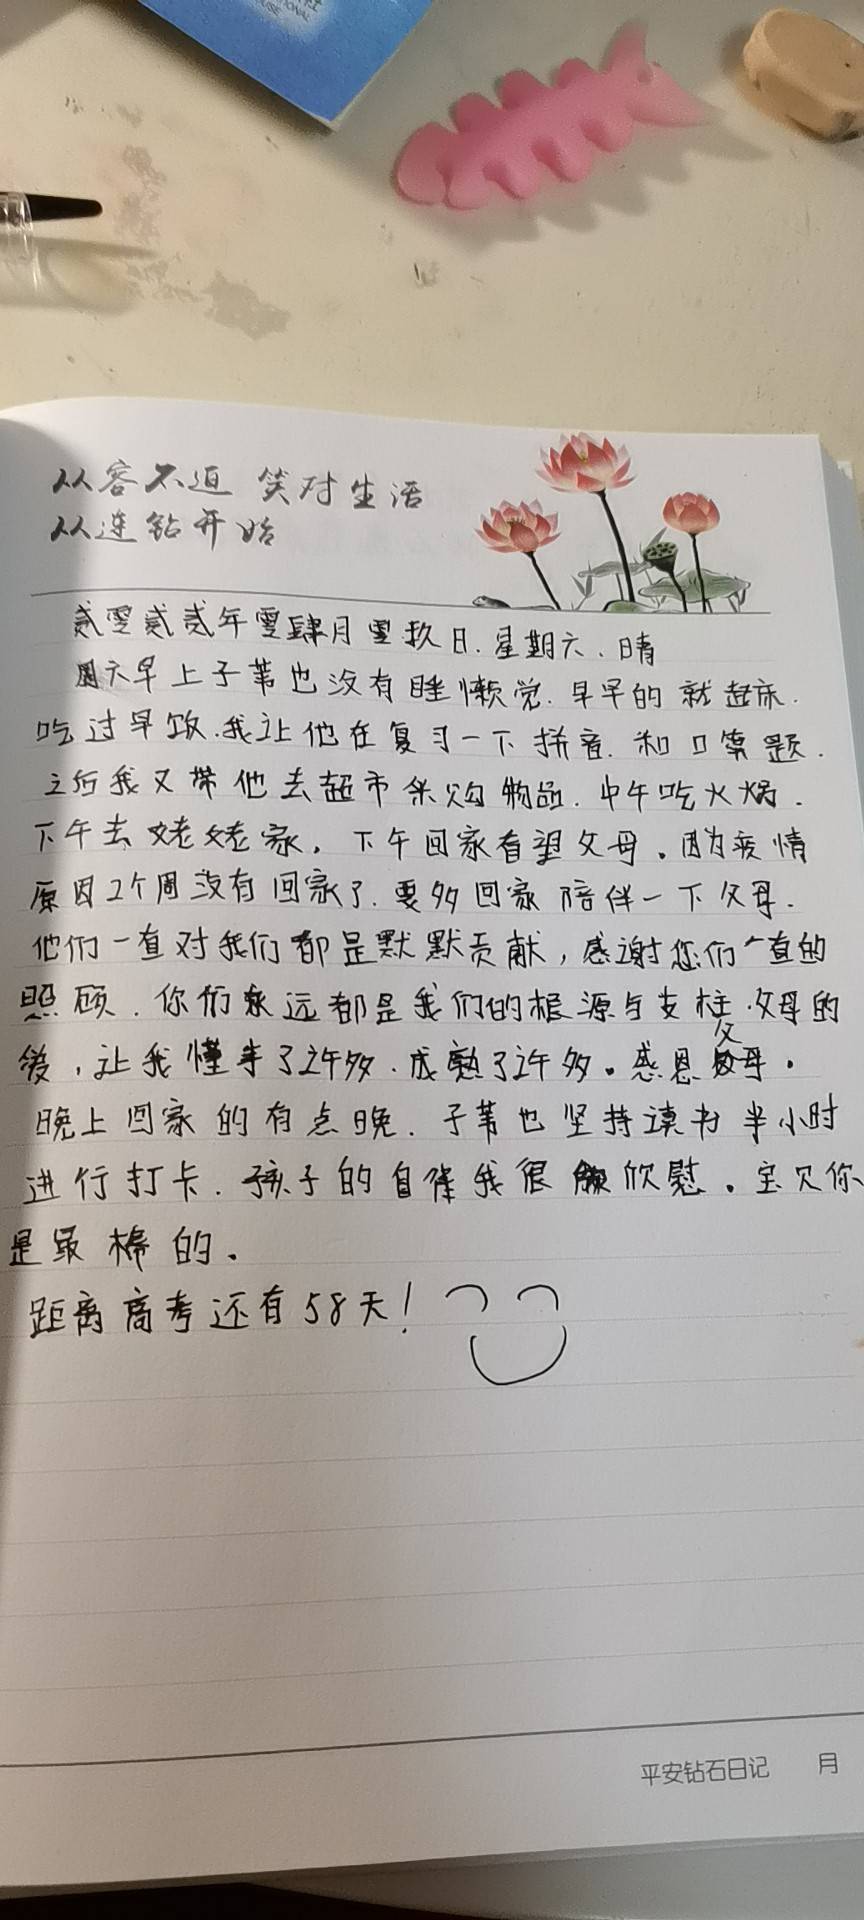 从容不迫 笑对生活
从连钻开始
贰零贰贰年零肆月零玖日.星期六、晴
周六早上子苇也没有睡懒觉.早早的就起床.
吃过早饭.我让他在复习一下拼音.和口算题.
之后我又带他去超市采购物品.中午吃火锅.
下午去姥姥家。下午回家看望父母。因为疫情
原因2个周没有回家了.要多回家陪伴一下父母.
他们一直对我们都是默默贡献，感谢您们一直的
照顾.你们永远都是我们的根源与支柱.父母的
爱，让我懂事了许多.成熟了许多。感恩父母。
晚上回家的有点晚.子苇也坚持读书半小时
进行打卡.孩子的自律我很欣慰。宝贝你
是最棒的。
距离高考还有58天！
平安钻石日记 月